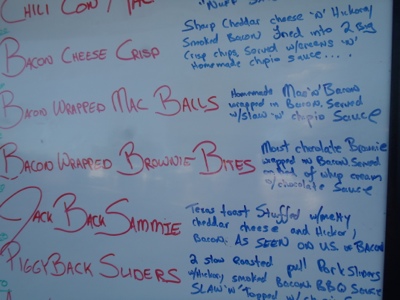 CHILI CON / MAC
"NUFF
BACON CHEESE CRISP
Sharp cheddar cheese 'N' Hickory
Smoked Bacon fried into 2 Big
Crisp chips Served w/GREENS 'N'
Homemade chipio sauce....
BACON WRAPPED MAC BALLS
Homemade Mac'n'Bacon
wrapped in Bacon. Served
w/slaw 'n' chipio Sauce
BACON WRAPPED BROWNIE BITES
Moist chocolate Brownie
wrapped in Bacon Served
w/ of whip cream
chocolate sauce
JACK BACK SAMMIE
Texas toast Stuffed w/melty
cheddar cheese and Hickory,
Bacon. AS SEEN ON U.S. OF BACON
PIGGYBACK SLIDERS
2 slow Roasted pull Pork Sliders
w/Hickory smoked bacon BBQ Sauce
SLAW 'N' Topped w/